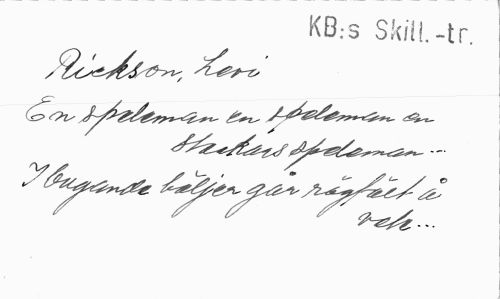 KB:s Skill.-tr.
Rickson, Levi
En speleman en speleman en
stackars speleman...
I bugande böljer går rågfält å
vete...